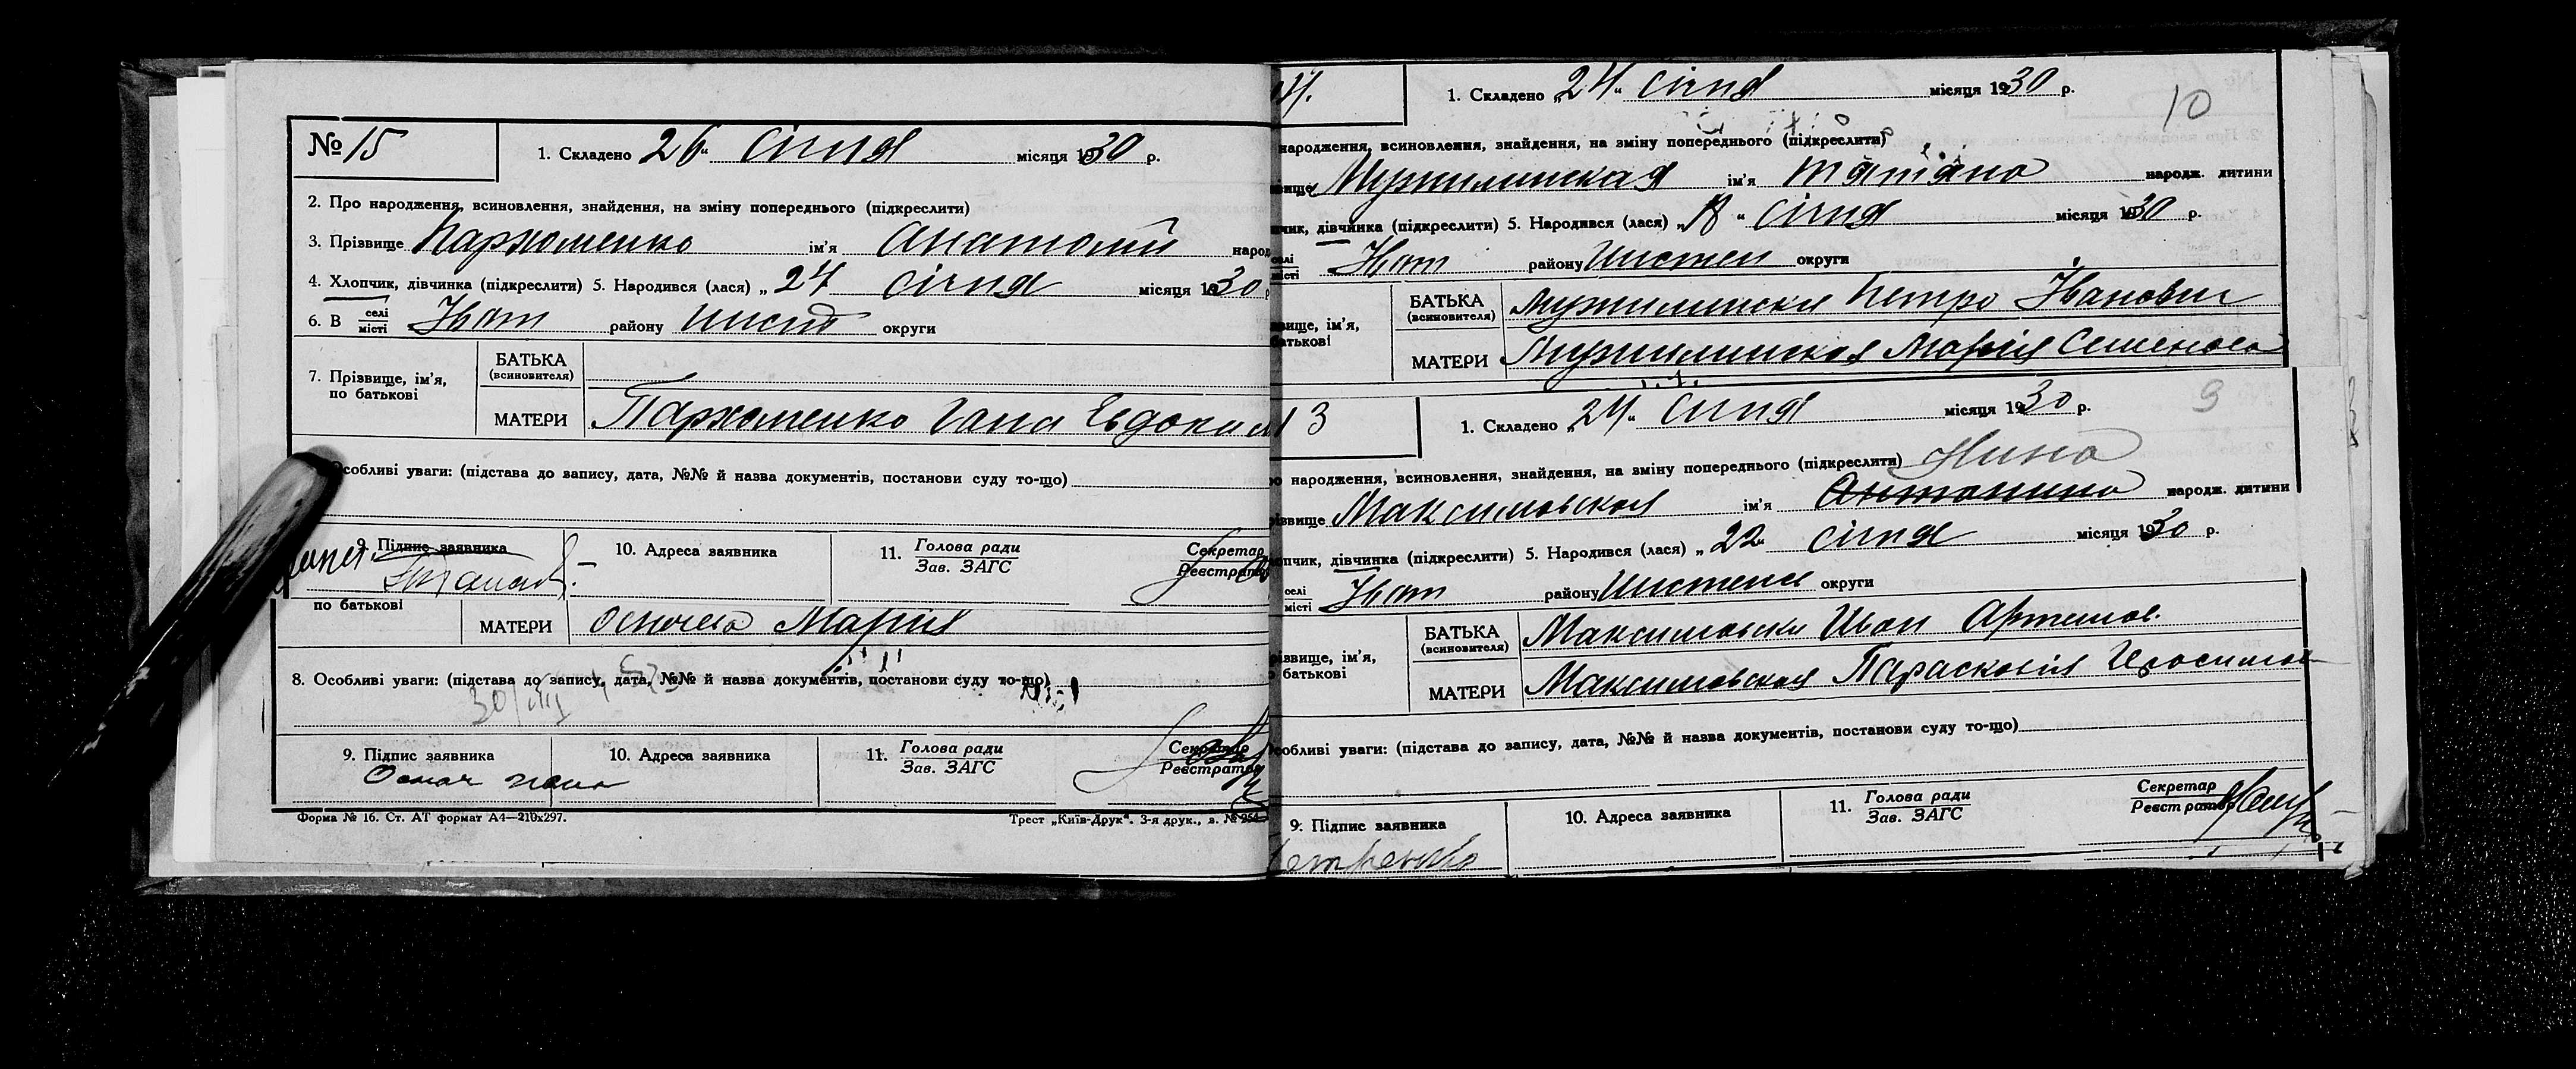 № 15
1. Складено 26 січня місяця 1930 р.
2. Про народження, всиновлення, знайдення, на зміну попереднього (підкреслити)
3. Прізвище Пархоменко ім'я Анатолий народ
4. Хлопчик, дівчинка (підкреслити) 5. Народився (лася) „ 24 січня місяця 1930 р
6. В селі місті району округи
7. Прізвище, ім'я, по батькові
БАТЬКА (всиновителя)
МАТЕРИ Пархоменко Гана Евдоким
Особливі уваги: (підстава до запису, дата, №№ й назва документів, постанови суду то-що)
9. Підпис заявника 10. Адреса заявника 11. Голова ради Зав. ЗАГС Секретар Реєстратор
по батькові
МАТЕРИ Мария
8. Особливі уваги: (підстава до запису, дата, №№ й назва документів, постанови суду то-що)
9. Підпис заявника 10. Адреса заявника 11. Голова ради Зав. ЗАГС Секретар Реєстратор
Форма № 16. Ст. АТ формат А4—210х297. Трест „Київ-Друк". 3-я друк., з. № 254
14.
1. Складено „24" січня місяця 1930 р.
10
народження, всиновлення, знайдення, на зміну попереднього (підкреслити)
вище Мужилинская ім'я Татіана народж. дитини
чик, дівчинка (підкреслити) 5. Народився (лася) „ " січня місяця 1930 р.
селі місті району округи
вище, ім'я, батькові
БАТЬКА (всиновителя) Мужилински Петро Іванович
МАТЕРИ Мужилинская Марія Семенова
13
1. Складено „24" січня місяця 1930 р.
9
о народження, всиновлення, знайдення, на зміну попереднього (підкреслити) Нина
різвище Максимовская ім'я Антонина народж. дитини
опчик, дівчинка (підкреслити) 5. Народився (лася) „ 22 січня місяця 1930 р.
селі місті району округи
різвище, ім'я, о батькові
БАТЬКА (всиновителя) Максимовски Иван Артемов.
МАТЕРИ Максимовская Парасковія
собливі уваги: (підстава до запису, дата, №№ й назва документів, постанови суду то-що)
9. Підпис заявника 10. Адреса заявника 11. Голова ради Зав. ЗАГС Секретар Реєстратор